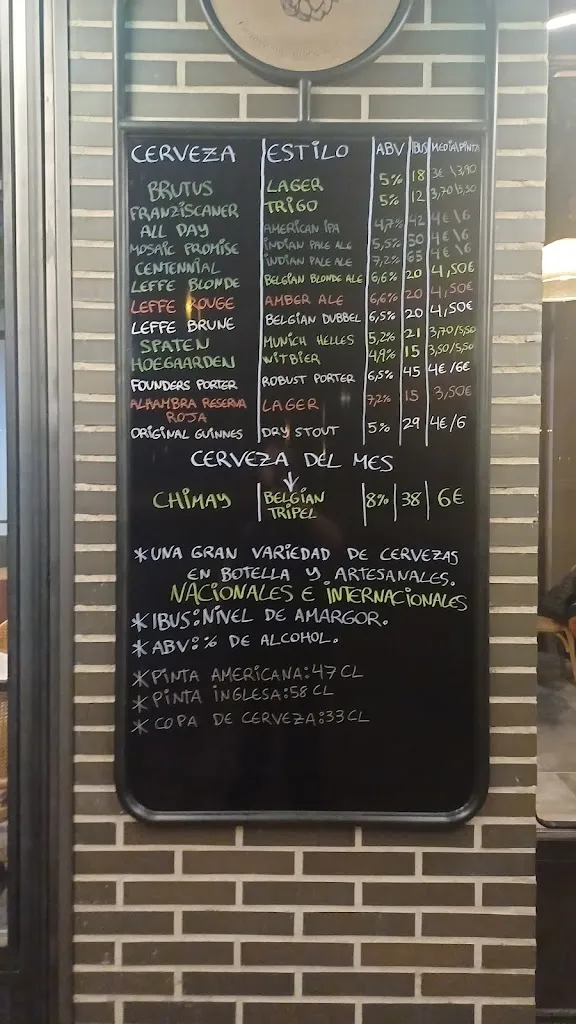 CERVEZA ESTILO ABV IBUS MEDIA\PINTA
BRUTUS LAGER 5% 18 3€\3,90
FRANZISCANER TRIGO 5% 12 3,70/5,50
ALL DAY AMERICAN IPA 4,7% 42 4€\6
MOSAIC PROMISE INDIAN PALE ALE 5,5% 50 4€\6
CENTENNIAL INDIAN PALE ALE 7,2% 65 4€\6
LEFFE BLONDE BELGIAN BLONDE ALE 6,6% 20 4,50€
LEFFE ROUGE AMBER ALE 6,6% 20 4,50€
LEFFE BRUNE BELGIAN DUBBEL 6,5% 20 4,50€
SPATEN MUNICH HELLES 5,2% 21 3,70/5,50
HOEGAARDEN WITBIER 4,9% 15 3,50/5,50
FOUNDERS PORTER ROBUST PORTER 6,5% 45 4€/6€
ALHAMBRA RESERVA ROJA LAGER 7,2% 15 3,50€
ORIGINAL GUINNES DRY STOUT 5% 29 4€/6
CERVEZA DEL MES
CHIMAY BELGIAN TRIPEL 8% 38 6€
*UNA GRAN VARIEDAD DE CERVEZAS
EN BOTELLA Y ARTESANALES.
NACIONALES E INTERNACIONALES
*IBUS:NIVEL DE AMARGOR.
*ABV:% DE ALCOHOL.
*PINTA AMERICANA:47 CL
*PINTA INGLESA:58 CL
*COPA DE CERVEZA:33 CL